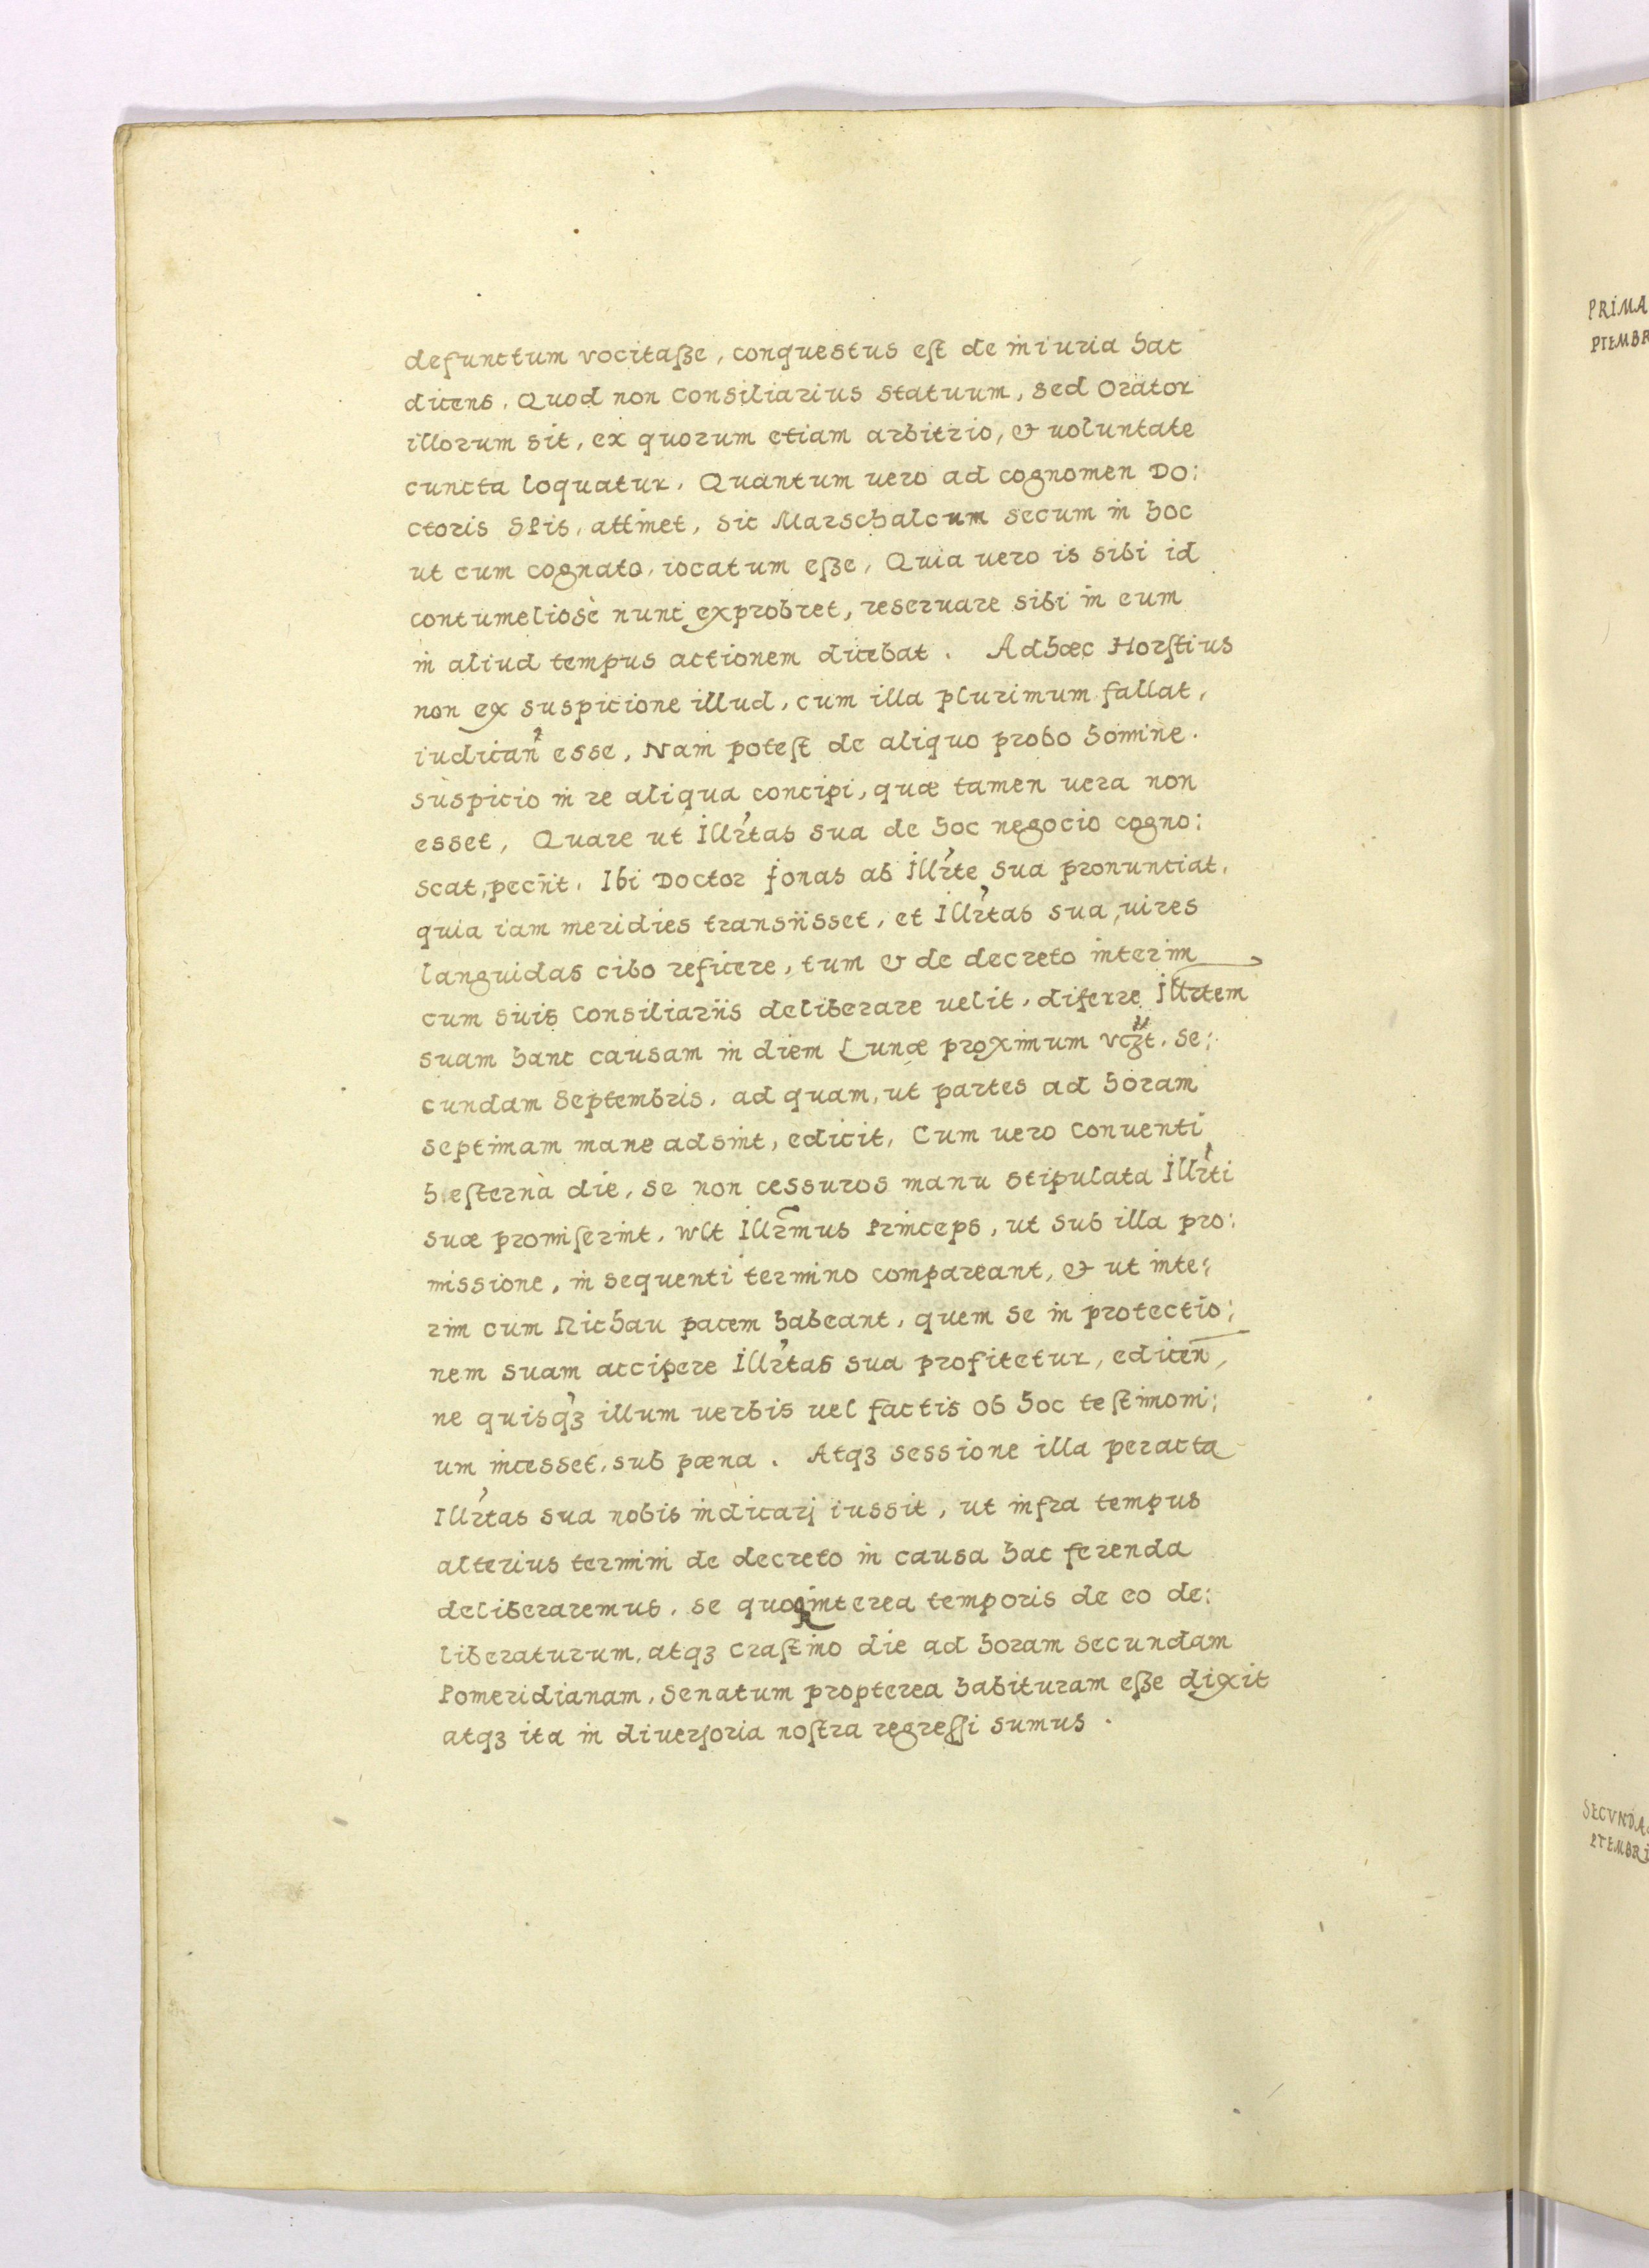 defunctum vocitaße, conquestus eſt de iniuria hac
dicens, Quod non Consiliarius Statuum, sed Orator
illorum sit, ex quorum etiam arbitrio, & uoluntate
cuncta loquatur, Quantum uero ad cognomen Do:
ctoris attinet, sic Marschalcum secum in hoc
ut cum cognato, iocatum eße, Quia uero is sibi id
contumeliosè nunc exprobret, reseruare sibi in eum
in aliud tempus actionem dicebat. Adhæc Horſtius
non ex suspicione illud, cum illa plurimum fallat,
iudican̄ esse, Nam poteſt de aliquo probo homine.
suspicio in re aliqua concipi, quæ tamen uera non
esset, Quare ut Illr̓tas sua de hoc negocio cogno:
scat, pecn̄t. Ibi Doctor Jonas ab Illr̓te sua pronunciat,
quia iam meridies transijsset, et Illr̓tas sua, uires
languidas cibo reficere, tum & de decreto interim
cum suis Consiliarijs deliberare uelit, diferre Illrtem
suam hanc causam in diem Lunæ proximum se:
cundam Septembris, ad quam, ut partes ad horam
septimam mane adsint, edicit, Cum uero Conuenti
heſternà die, se non cessuros manu stipulata Illr̓ti
suæ promiſerint, wlt Illr̄mus Princeps, ut sub illa pro:
missione, in sequenti termino compareant, & ut inte:
rim cum Richau pacem habeant, quem se in protectio:
nem suam accipere Illr̓tas sua profitetur, edicen̄,
ne quisqȝ illum uerbis uel factis ob hoc teſtimoni:
um incesset, sub pæna. Atqȝ sessione illa peracta
Illr̓tas sua nobis indicarj iussit, ut infra tempus
alterius termini de decreto in causa hac ferenda
deliberaremus, se quoqȝ interea temporis de eo de:
liberaturum, atqȝ craſtino die ad horam secundam
Pomeridianam, Senatum propterea habituram eße dixit
atqȝ ita in diuerſoria noſtra regreſſi sumus.
PRIMA
PTEMBR
SECVNDA
PTEMBRI